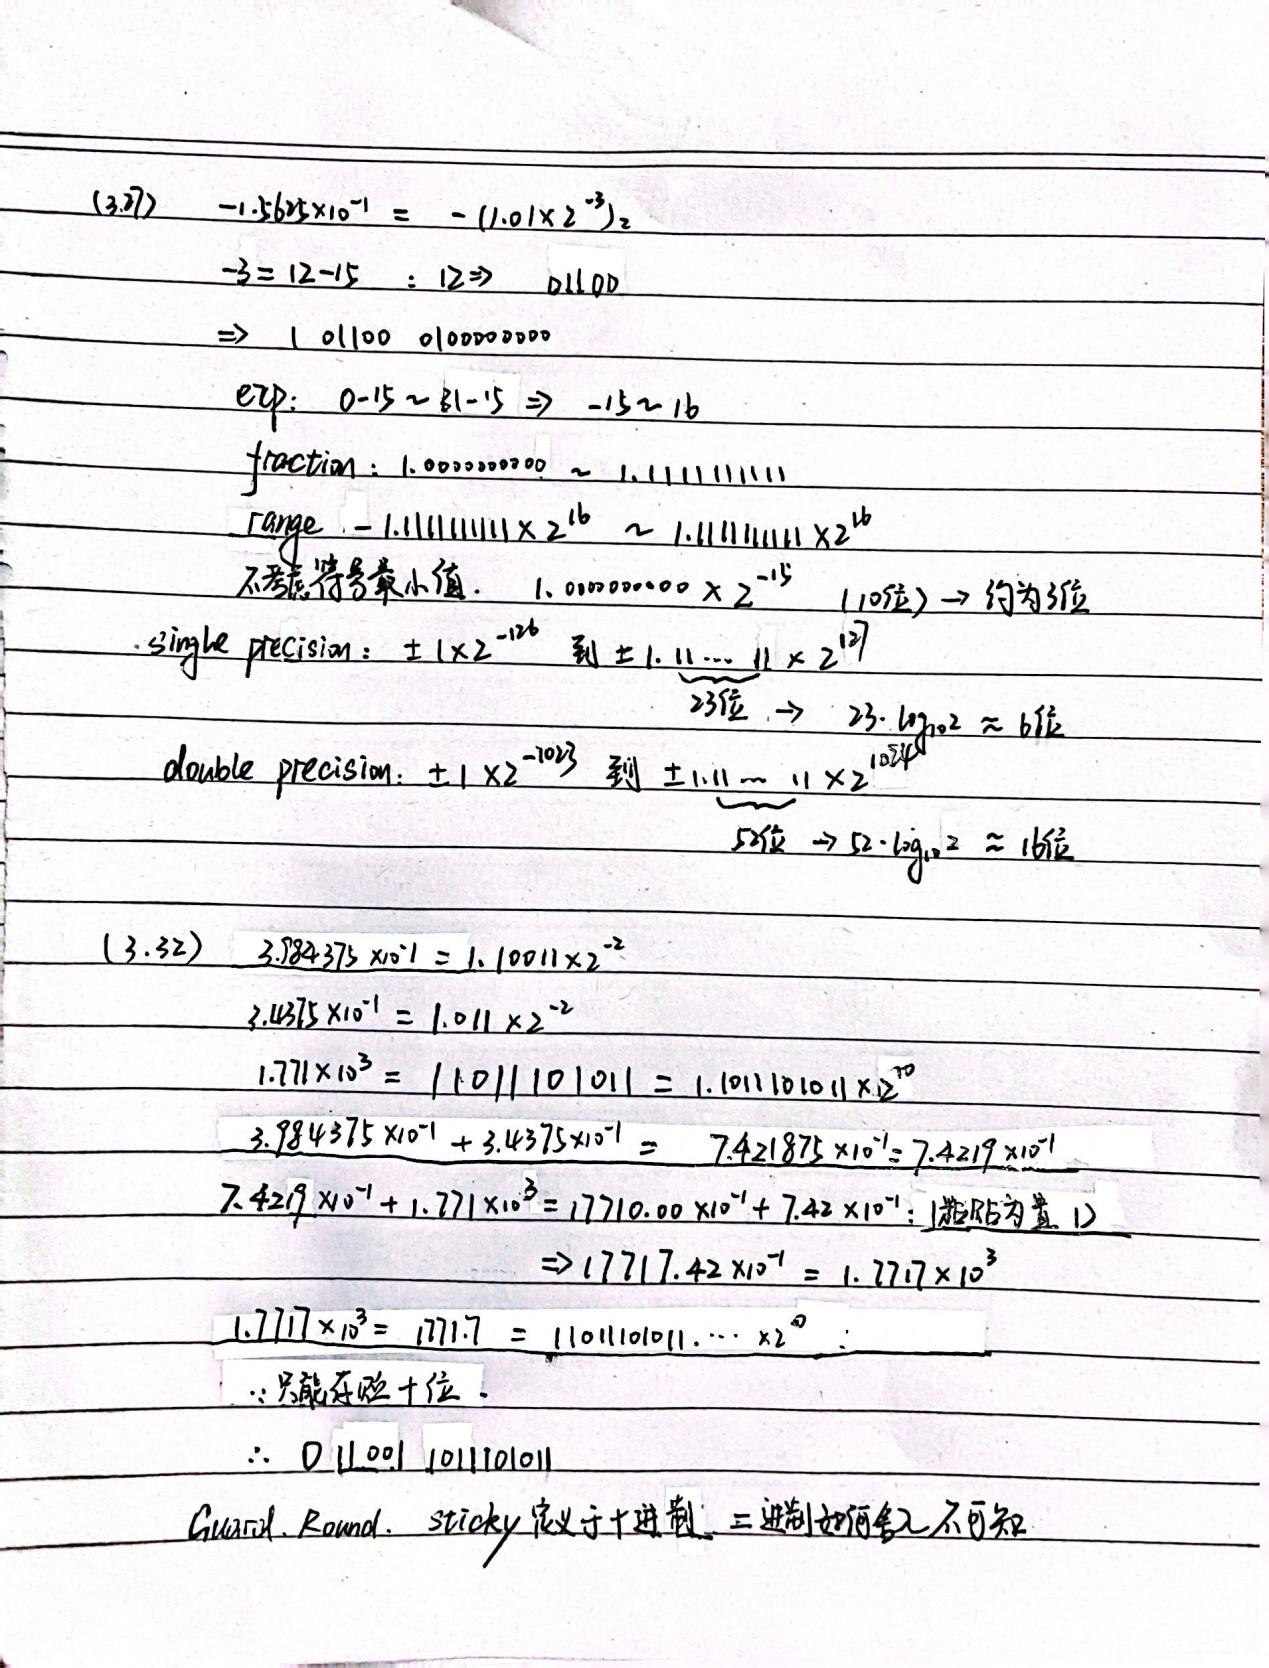 (3.27) -1.5625×10⁻¹ = -(1.01×2⁻³)₂
-3=12-15 : 12⇒ 01100
⇒ 1 01100 0100000000
exp: 0-15 ~ 31-15 ⇒ -15~16
fraction: 1.0000000000 ~ 1.1111111111
range -1.1111111111×2¹⁶ ~ 1.1111111111×2¹⁶
不考虑符号最小值. 1.0000000000×2⁻¹⁵ (10位)→约为3位
single precision: ±1×2⁻¹²⁶ 到 ±1.11...11×2¹²⁷
23位 → 23·log₁₀2 ≈ 6位
double precision: ±1×2⁻¹⁰²³ 到 ±1.11...11×2¹⁰²⁴
52位 → 52·log₁₀2 ≈ 16位
(3.32) 3.984375×10⁻¹ = 1.10011×2⁻²
3.4375×10⁻¹ = 1.011×2⁻²
1.771×10³ = 11011101011 = 1.1011101011×2¹⁰
3.984375×10⁻¹+3.4375×10⁻¹ = 7.421875×10⁻¹=7.4219×10⁻¹
7.4219×10⁻¹+1.771×10³=17710.00×10⁻¹+7.42×10⁻¹: 为置1)
⇒17717.42×10⁻¹ = 1.7717×10³
1.7717×10³ = 1771.7 = 11011101011.···×2⁰ :
∵只能存 十位.
∴ 0 11001 1011101011
Guard. Round. sticky定义于十进制 二进制如何舍入不可知